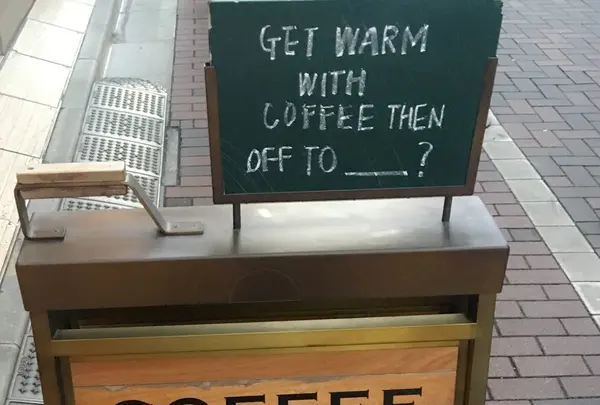 GET WARM
WITH
COFFEE THEN
OFF TO ____?
COFFEE